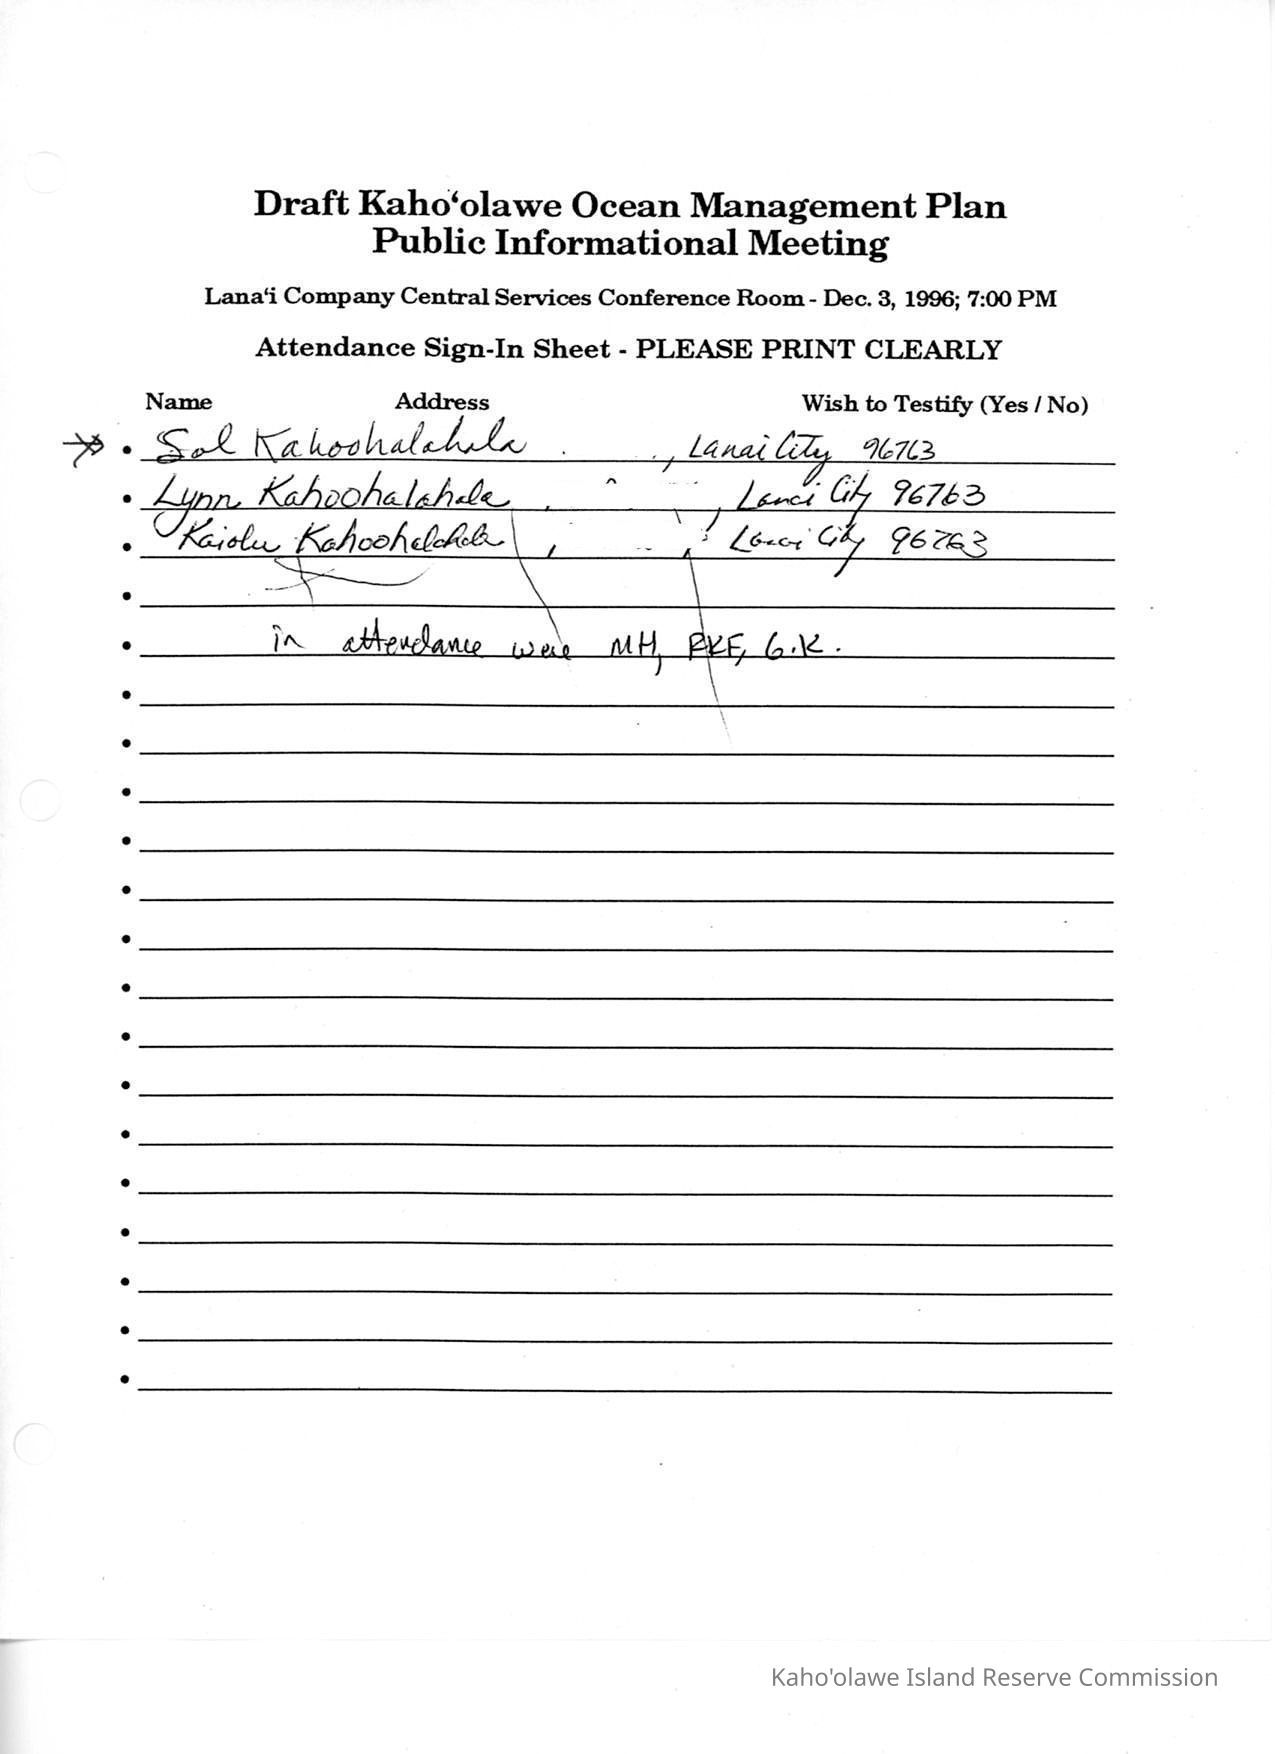 Draft Kahoʻolawe Ocean Management Plan
Public Informational Meeting
Lanaʻi Company Central Services Conference Room - Dec. 3, 1996; 7:00 PM
Attendance Sign-In Sheet - PLEASE PRINT CLEARLY
Name Address Wish to Testify (Yes / No)
• Sol Kahoohalahala , Lanai City 96763
• Lynn Kahoohalahala , , Lanai City 96763
• Kaiolu Kahoohalahala , , Lanai City 96763
•
• in attendance were MH, RKF, G.K.
•
•
•
•
•
•
•
•
•
•
•
•
•
•
•
Kaho'olawe Island Reserve Commission